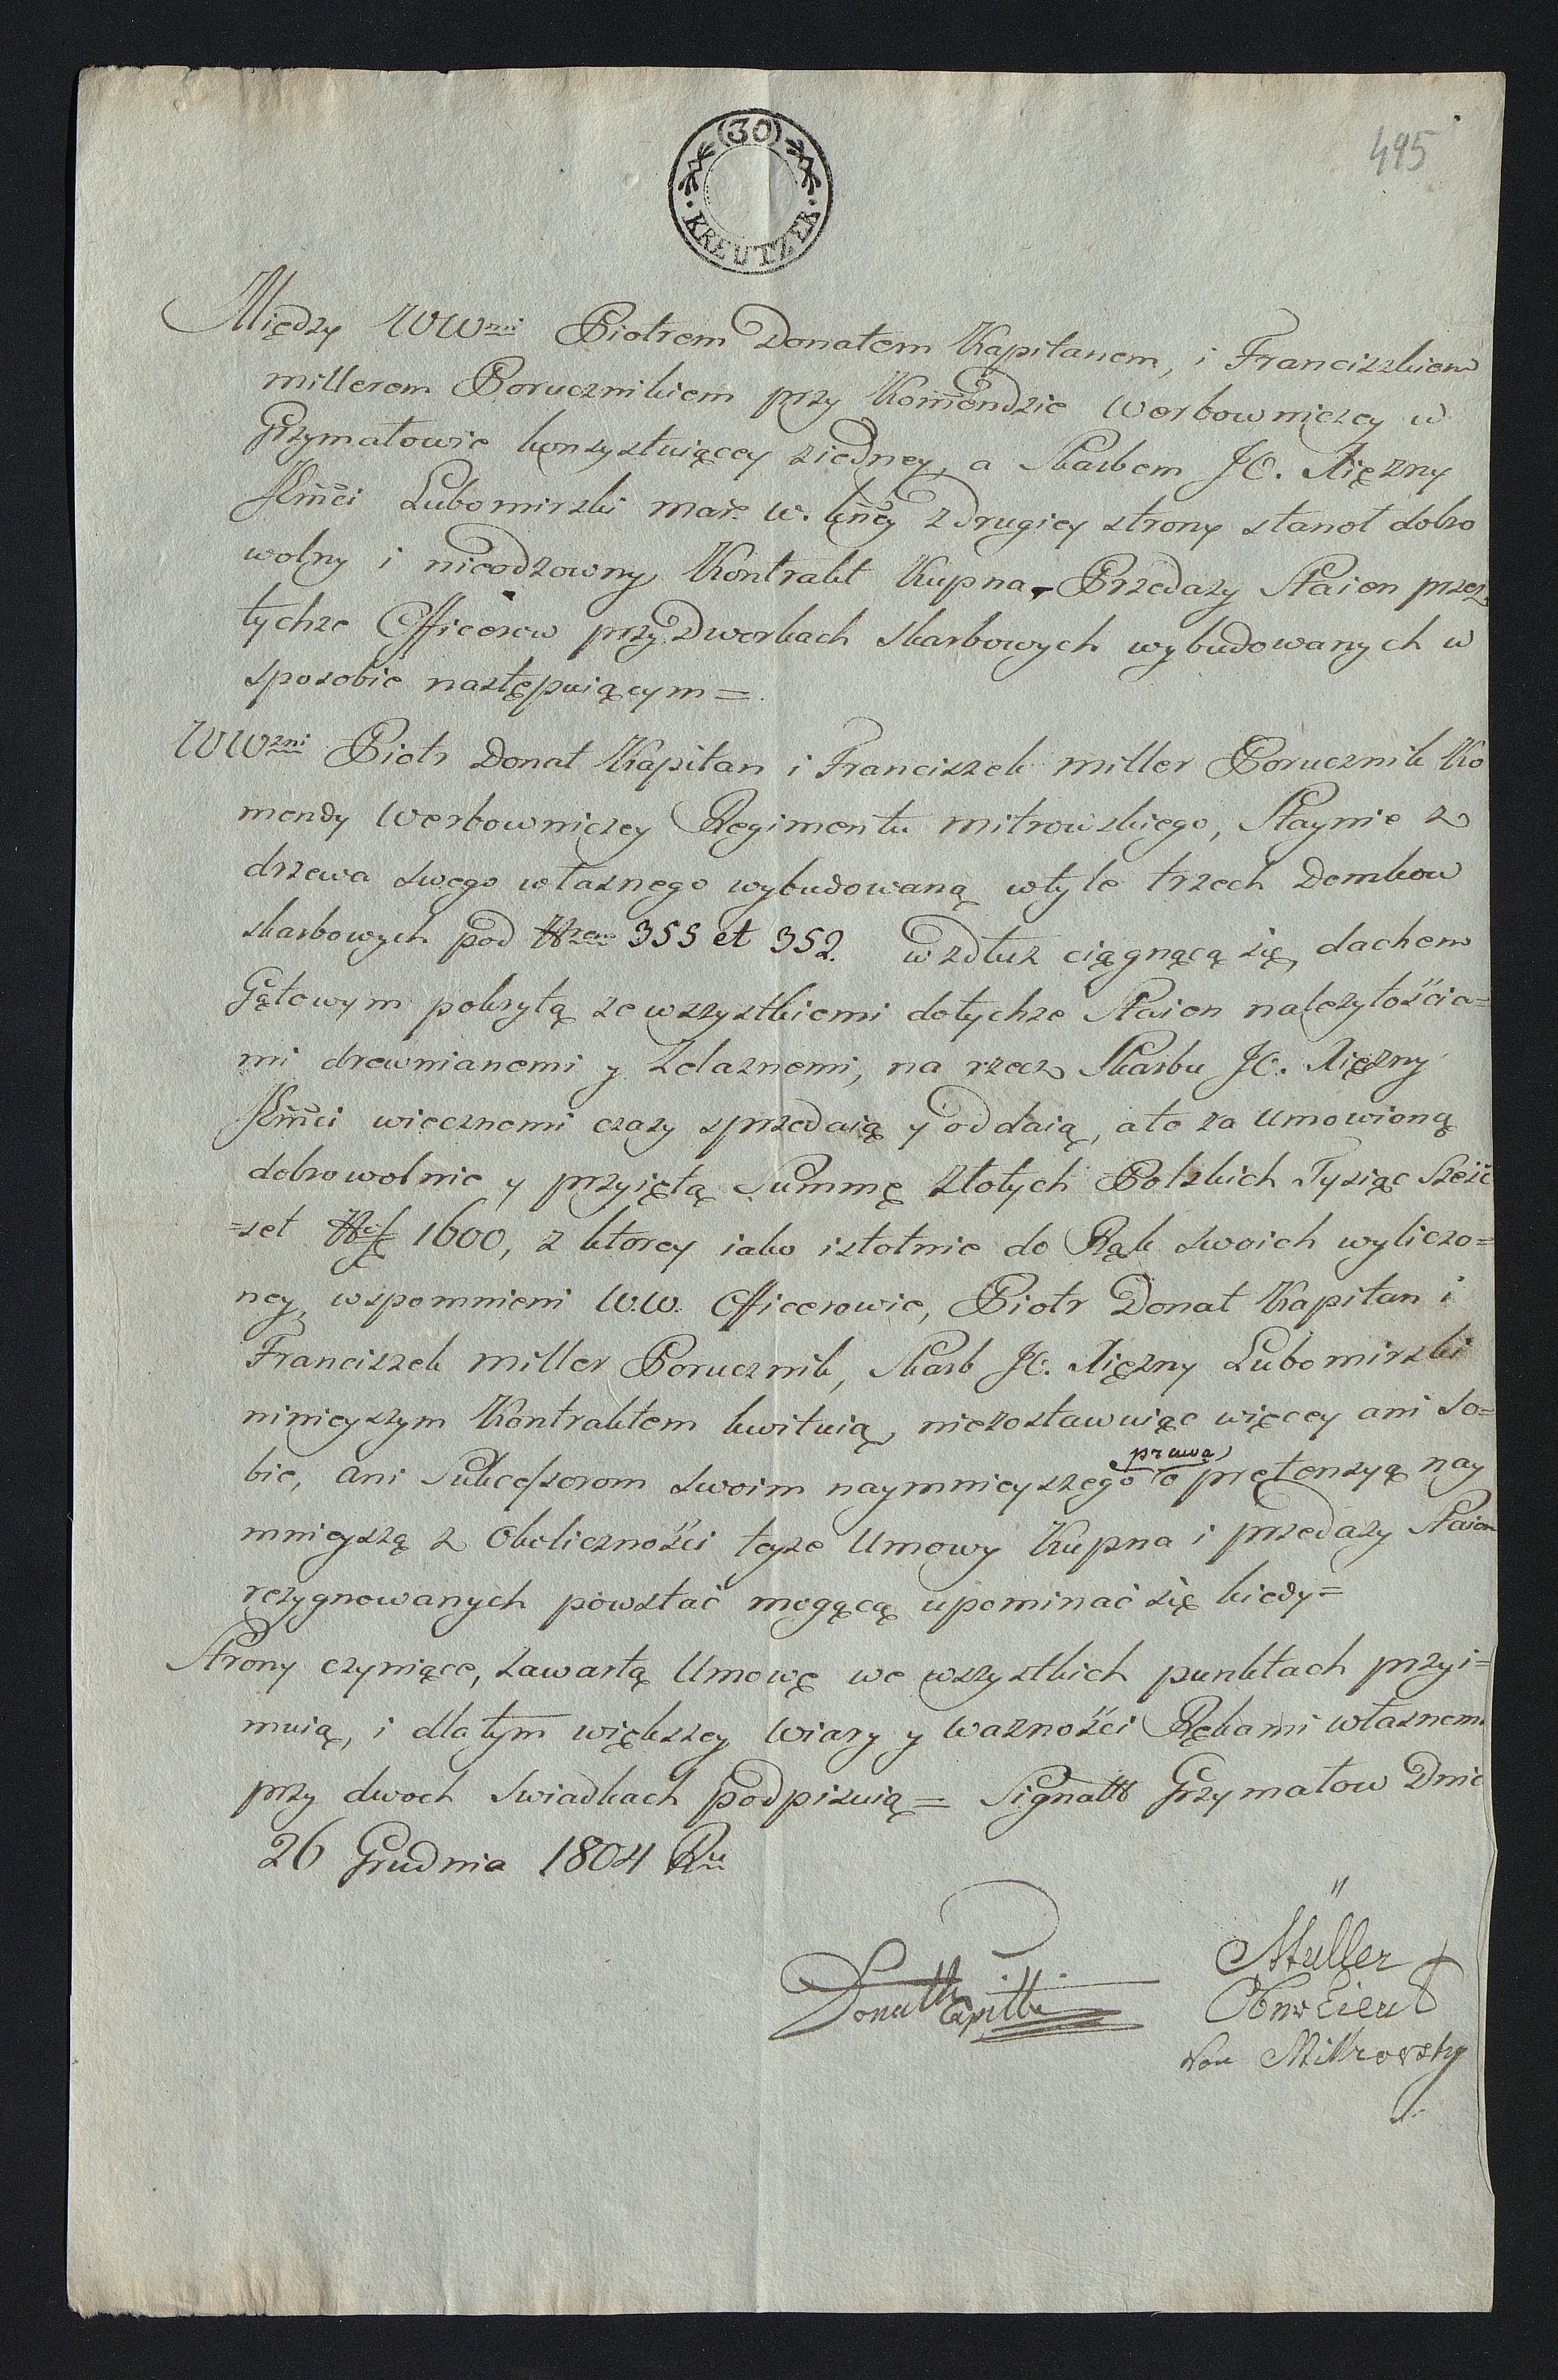 (30)
KREUTZER
495
Między WWmi Piotrem Donatem Kapitanem, i Franciszkiem
millerem Porucznikiem przy Komendzie werbowniczey w
Grzymałowie konsystuiącey ziedney, a Skarbem JO. Xiężny
Jmci Lubomirski mar. w. kney z drugiey strony stanoł dobro
wolny i nieodzowny Kontrakt Kupna, Przedaży Staien przez
tychże Officerow przy Dworkach skarbowych wybudowanych w
sposobie następuiącym =
WWżni Piotr Donat Kapitan i Franciszek miller Porucznik Ko
mendy werbowniczey Regimentu mitrowskiego, Staynie z
drzewa swego własnego wybudowaną wtyle trzech Domkow
skarbowych pod Nrem 353 et 352. wzdłuż ciągnącą się, dachem
Gątowym pokrytą ze wszystkiemi dotychże Staien należytościa=
mi drewnianemi y Żelaznemi, na rzecz Skarbu JO. Xiężny
Jmci wiecznemi czasy sprzedaią y oddaią, a to za umowioną
dobrowolnie y przyiętą Summę Złotych Polskich Tysiąc Sześć
=set 1600, z ktorey iako istotnie do Rąk swoich wyliczo=
ney, wspomnieni W.W. Officerowie, Piotr Donat Kapitan i
Franciszek miller Porucznik, Skarb JO. Xiężny Lubomirski
ninieyszym Kontraktem kwituią, niezostawuiąc więcey ani so=
bie, ani Sukcessorom swoim naymnieyszego prawa o pretensyą nay
mnieyszą z Okoliczności teyże Umowy Kupna i przedaży Staien
rezygnowanych powstać mogącą upominać się kiedy=
Strony czyniące, zawartą Umowę we wszystkich punktach przyi=
muią, i dla tym większey wiary y ważności Rękami własnemi
przy dwoch Swiadkach podpisuią = Signatt Grzymałow Dnia
26 Grudnia 1804 Ru
Donath Capitn
Müller
Ober Lieut
von Mittrowsky